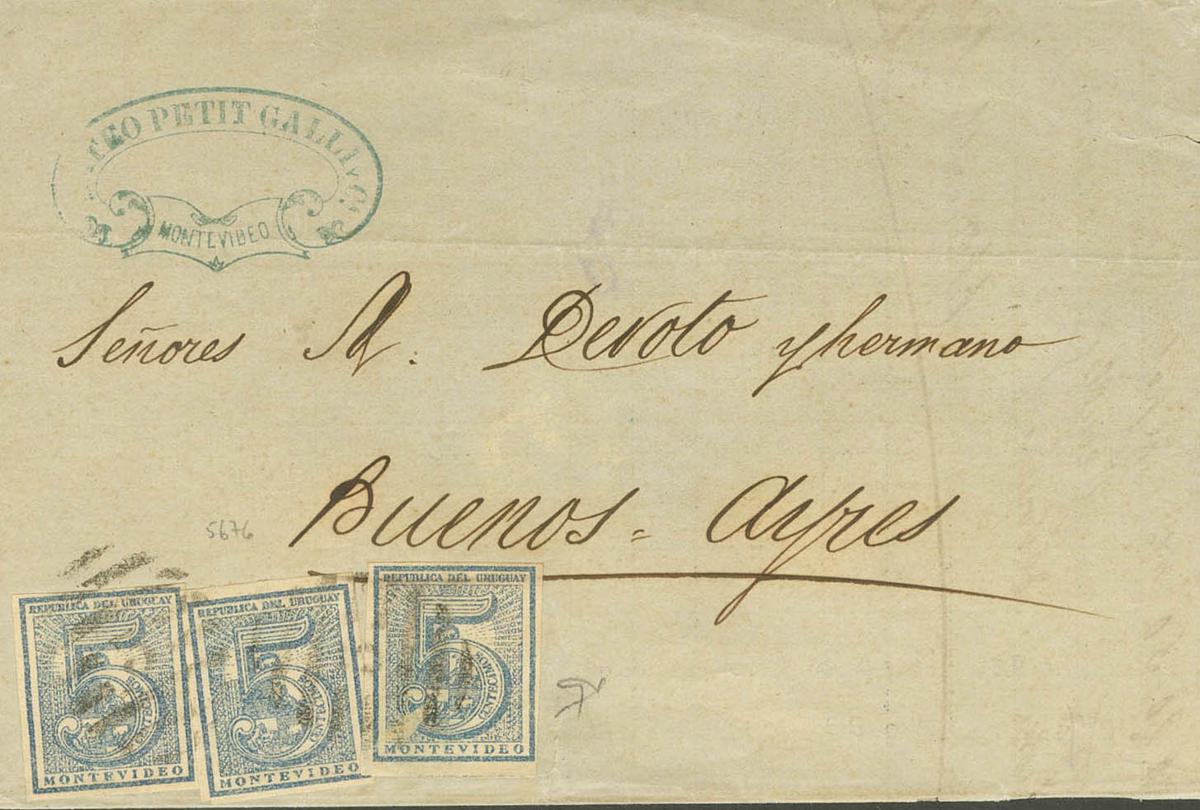 TEO PETIT GALLI Y Ca.
MONTEVIDEO
Señores M. Devoto y hermano
Buenos = Ayres
5676
REPUBLICA DEL URUGUAY
5
CENTECIMOS
MONTEVIDEO
REPUBLICA DEL URUGUAY
5
CENTECIMOS
MONTEVIDEO
REPUBLICA DEL URUGUAY
5
CENTECIMOS
MONTEVIDEO